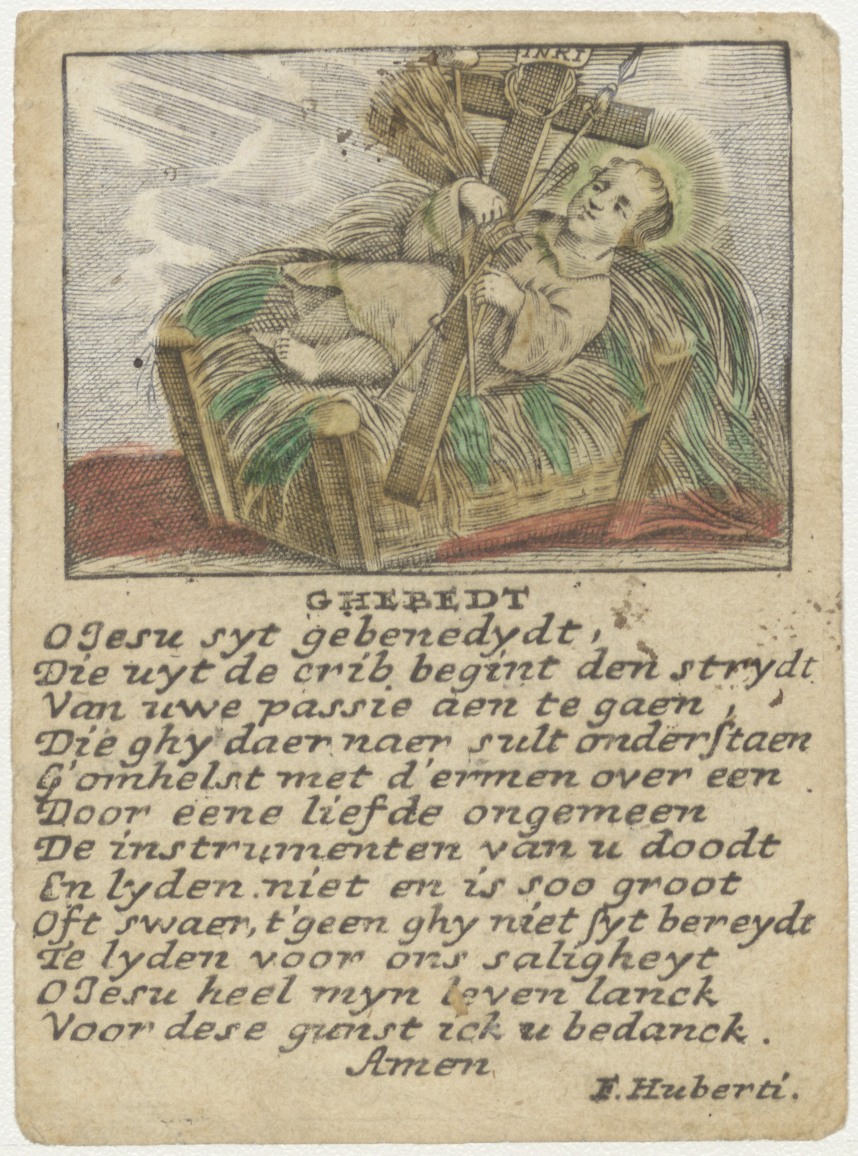 INRI
GHEBEDT
O Jesu syt gebenedydt,
Die uyt de crib begint den strydt
Van uwe passie aen te gaen,
Die ghy daer naer sult onderſtaen
G'omhelst met d'ermen over een
Door eene liefde ongemeen
De instrumenten van u doodt
En lyden. niet en is soo groot
Oft swaer, t'geen ghy niet ſyt bereydt
Te lyden voor ons saligheyt
O Jesu heel myn leven lanck
Voor dese gunst ick u bedanck.
Amen
F. Huberti.